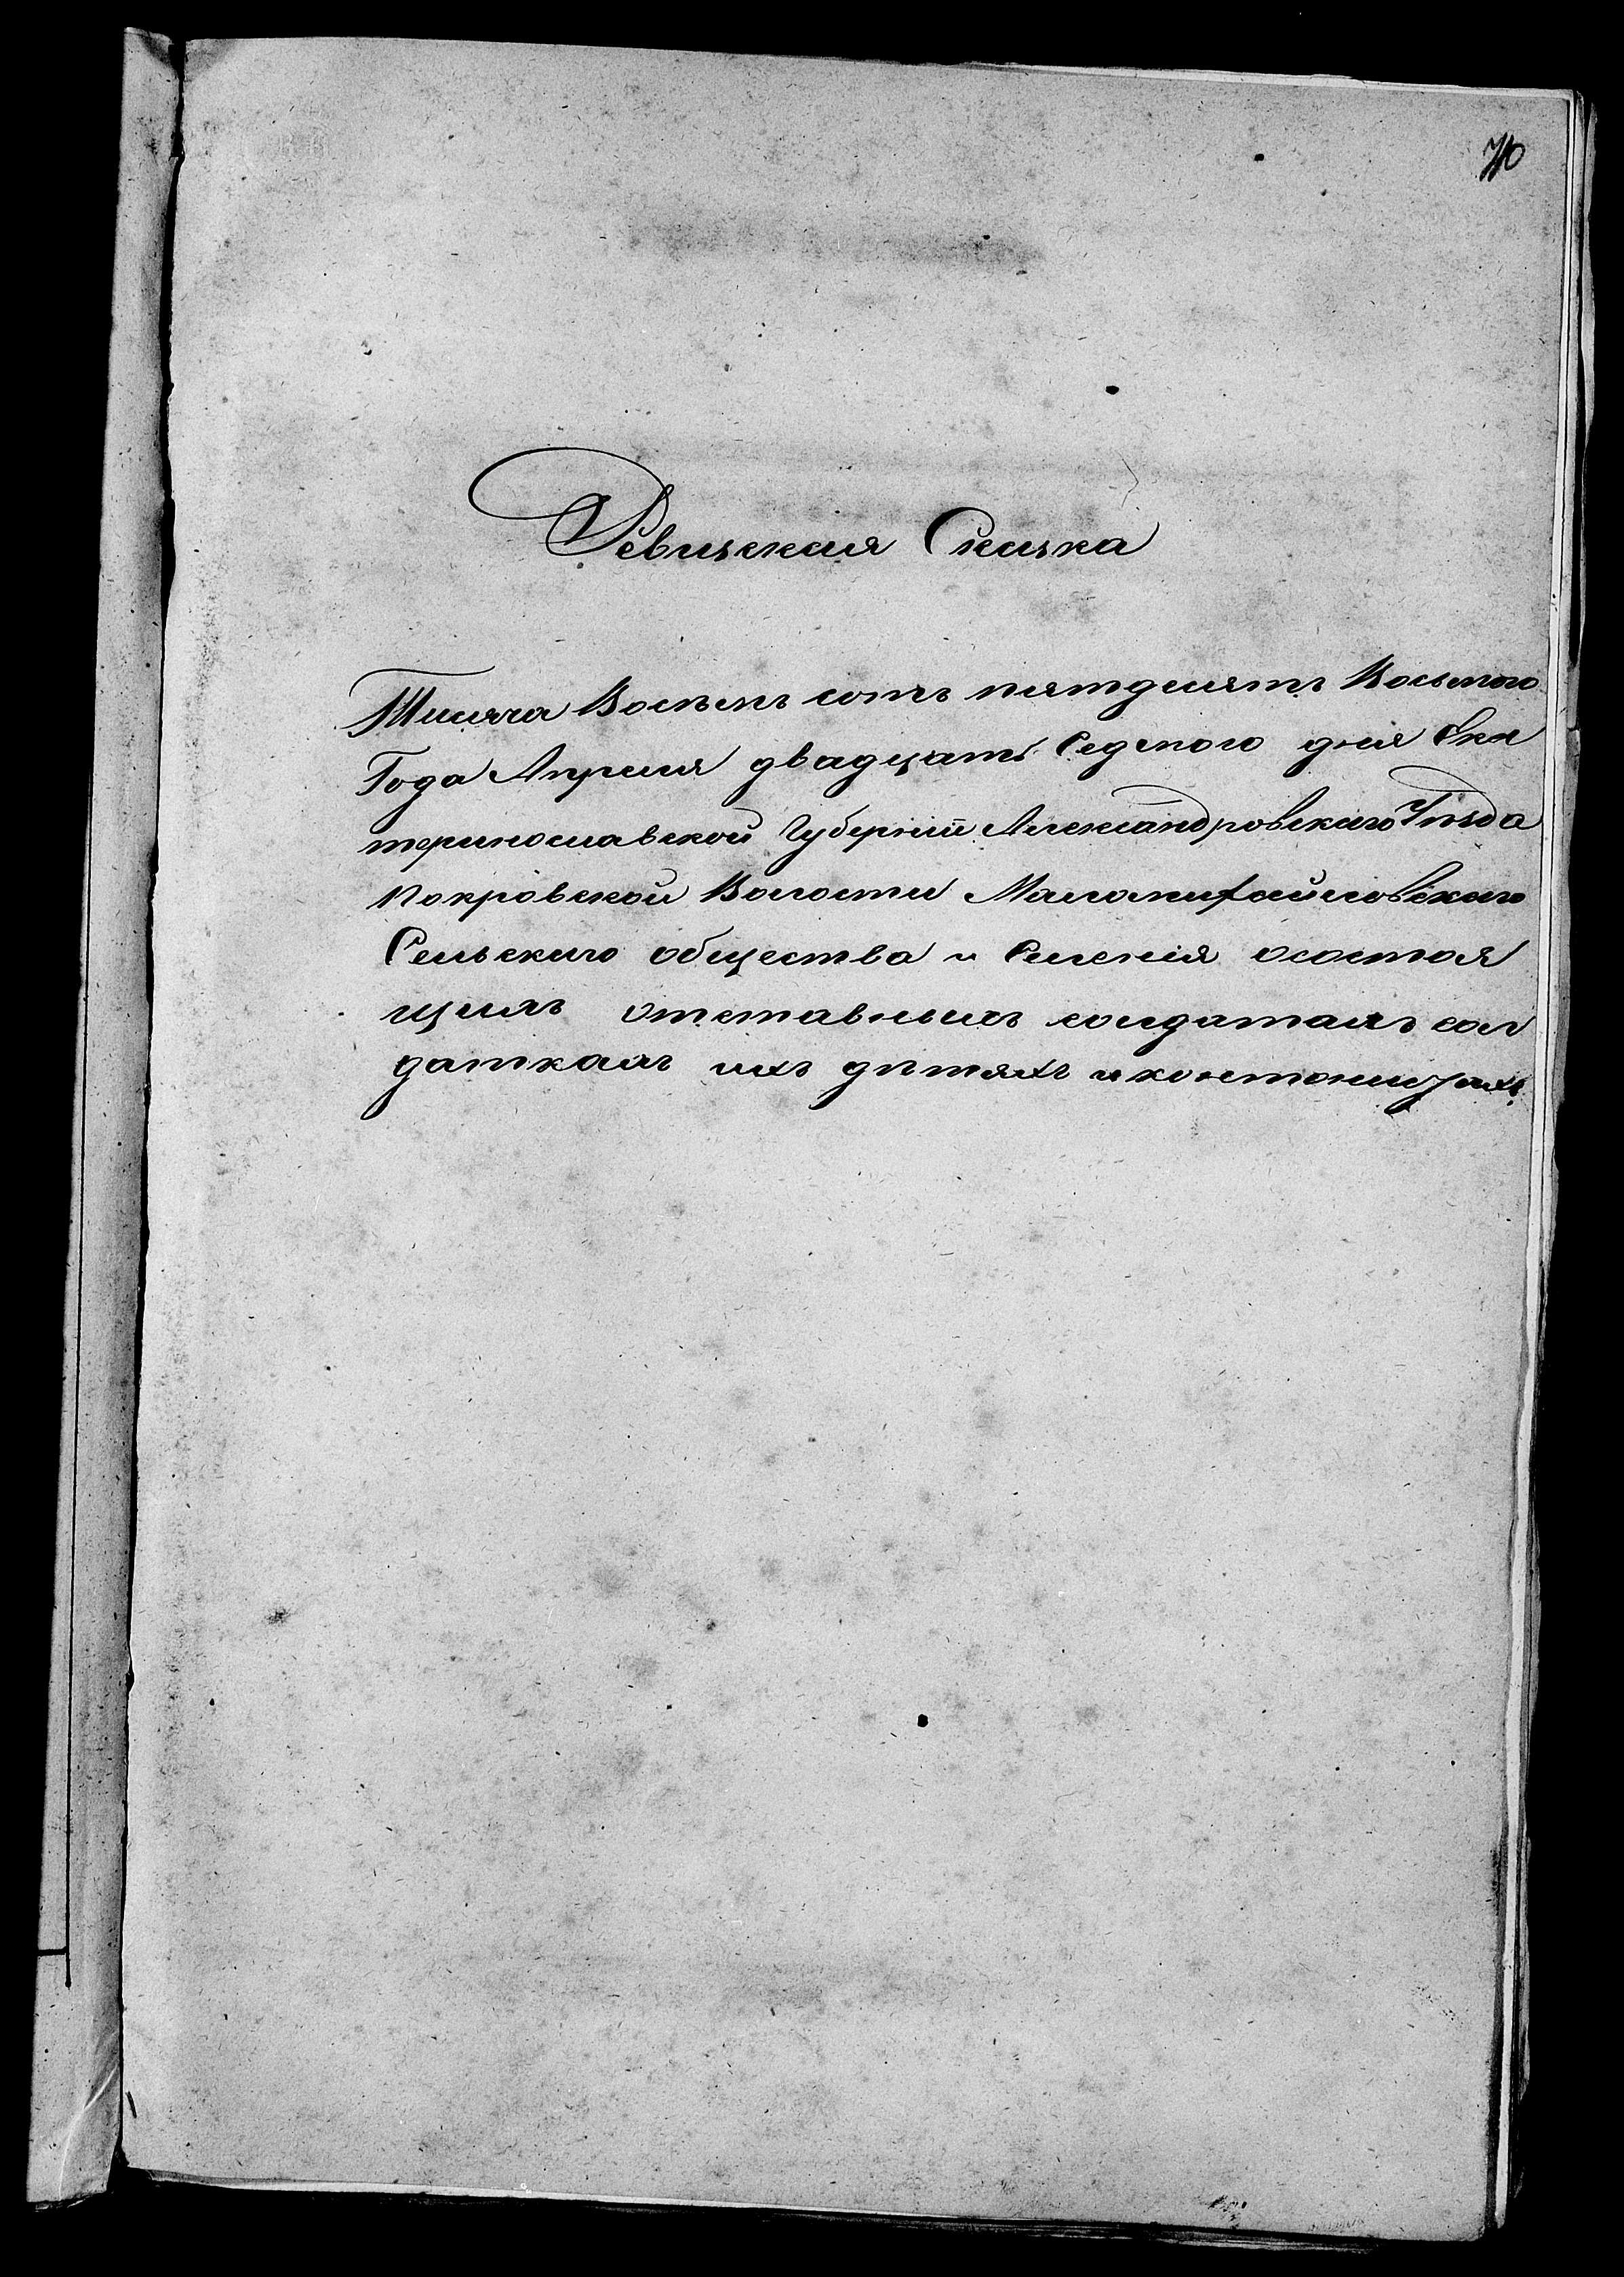 70
Ревизская Сказка
Тисяча Восемь сотъ пятдесятъ Восьмого
Года Апреля двадцать Седмого дня Ека
теринославской Губерніи Александровскаго Уѣзда
Покровской Волости Маломихайловскаго
Сельскаго общества и Селенія осостоя
щихъ отставныхъ солдатахъ сол
даткахъ ихъ дѣтяхъ и контонистахъ